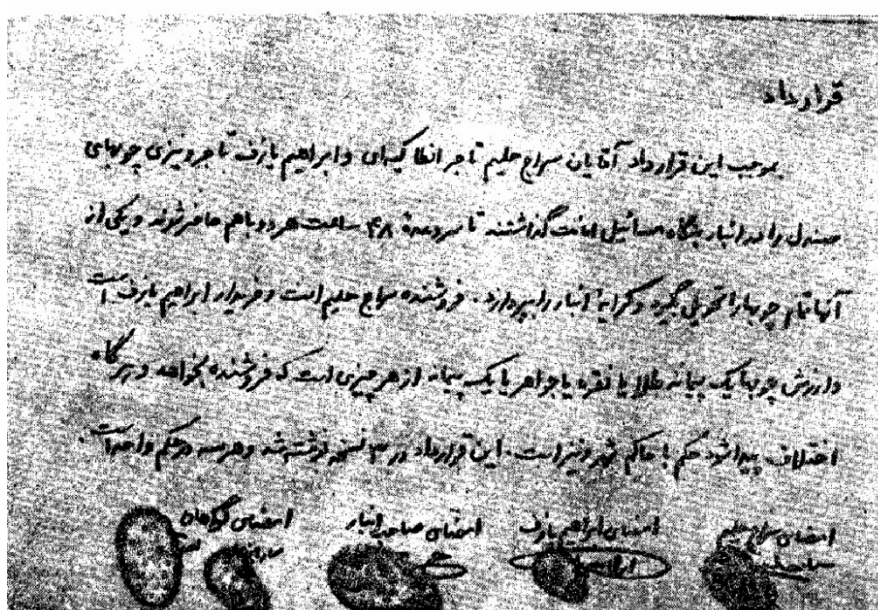 قرارداد
بموجب این قرارداد آقایان سراج حلیم تاجر انطاکیه‌ای و ابراهیم بازرف تاجر ونیزی چوبهای
صندل را در انبار بنگاه میسائیل امانت گذاشتند تا سر وعدهٔ ۴۸ ساعت هر دو باهم حاضر شوند و یکی از
آنها تمام چوبها را تحویل بگیرد و کرایهٔ انبار را بپردازد. فروشنده سراج حلیم است و خریدار ابراهیم بازرف است
و ارزش چوبها یک پیمانه طلا یا نقره یا جواهر یا یک پیمانه از هر چیزی است که فروشنده بخواهد و هر گاه
اختلاف پیدا شود حکم با حاکم شهر ونیز است. این قرارداد در ۳ نسخه نوشته شد و هر سه در حکم واحد است.
امضای سراج حلیم امضای ابراهیم بازرف امضای صاحب انبار امضای گواهان